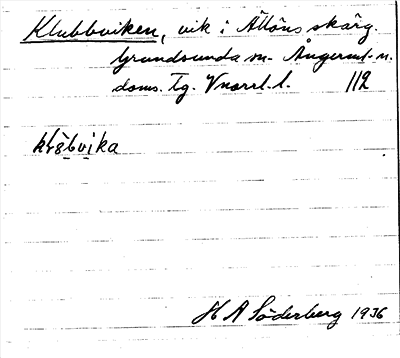 Klubbviken, vik i Ällöns skärg.
Grundsunda sn. Ångerml. n.
doms. Tg. Vnorrl. l. 112
H A Söderberg 1936